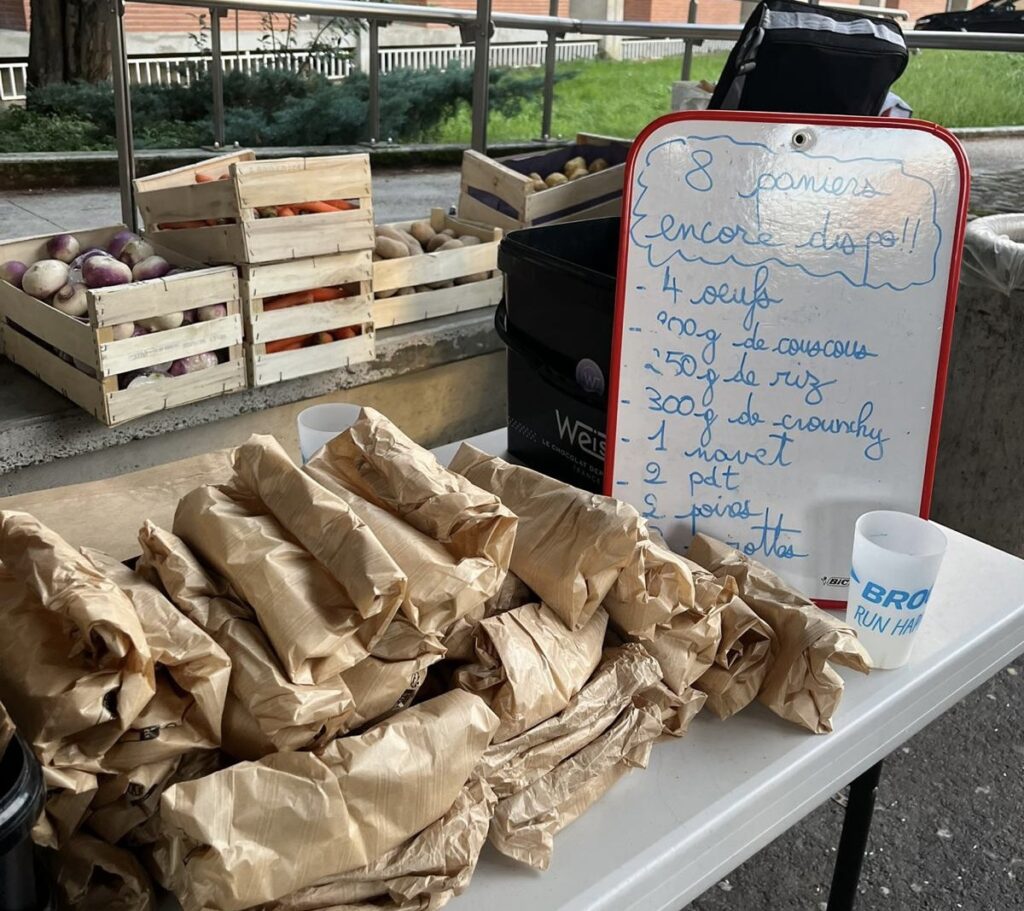 8 paniers
encore dispo!!
- 4 oeufs
- 900g de couscous
- 250g de riz
- 300g de crounchy
- 1 navet
- 2 pdt
- 2 poires
BIC
Weis
LE CHOCOLAT
BRO
RUN HA